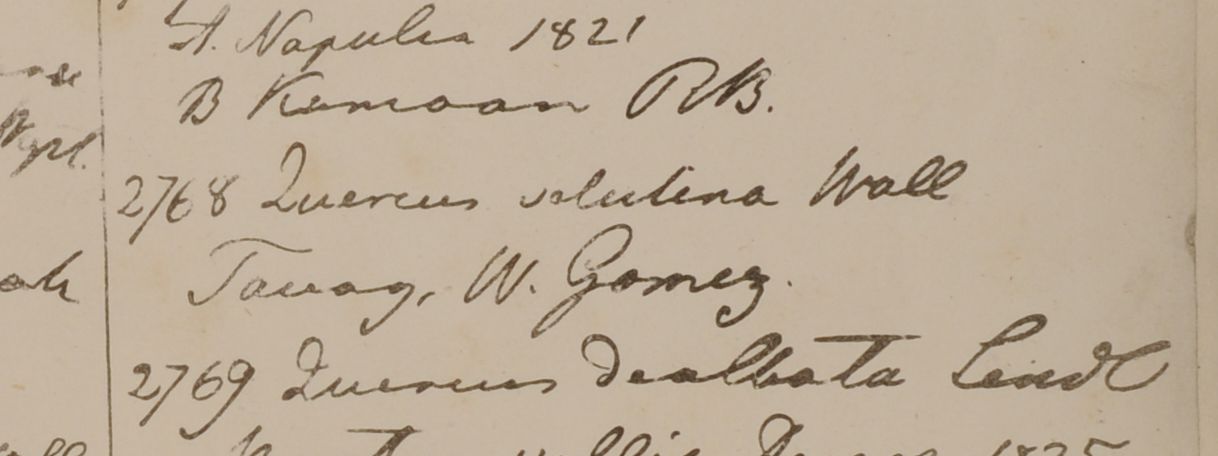 A. Napulia 1821
B Kamoan RB.
2768 Quercus velutina Wall
Tavoy, W. Gomez.
2769 Quercus dealbata Lindl
1825